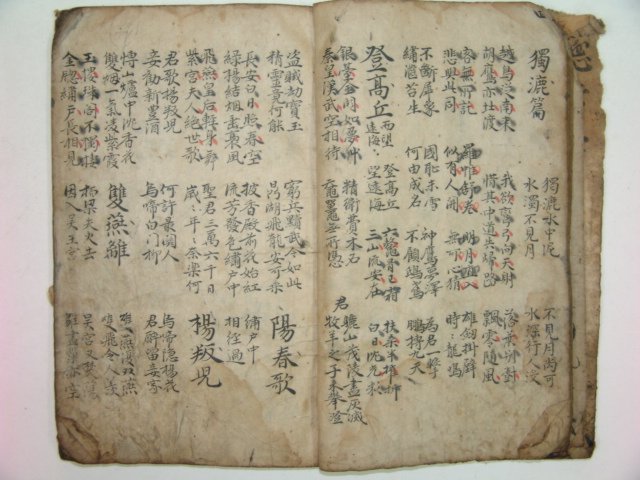 獨漉篇
獨漉水中泥
水濁不見月
不見月尚可
水深行人沒
越鳥從南來
胡鷹亦北渡
我欲彎弓向天射
惜其中道失歸路
落葉別樹
飄零隨風
客無所託
悲與此同
羅帷舒卷
似有人開
明月直入
無心可猜
雄劍掛壁
時時龍鳴
不斷犀象
繡澁苔生
國恥未雪
何由成名
神鷹夢澤
不顧鴟鳶
為君一擊
鵬搏九天
登高丘而望遠海
登高丘
望遠海
六鰲骨已霜
三山流安在
扶桑半摧折
白日沈光彩
銀臺金闕如夢中
秦皇漢武空相待
精衛費木石
黿鼉無所憑
君
驪山茂陵盡灰滅
牧羊之子來攀登
盜賊劫寶玉
精靈竟何能
窮兵黷武今如此
鼎湖飛龍安可乘
陽春歌
長安白日照春空
綠楊結烟桑裊風
披香殿前花始紅
流芳發色繡戶中
繡戶中
相經過
飛燕皇后輕身舞
紫宮夫人絕世歌
聖君三萬六千日
歲歲年年奈樂何
楊叛兒
君歌楊叛兒
妾勸新豊酒
何許最關人
烏啼白門柳
烏啼隱楊花
君醉留妾家
博山爐中沈香火
雙烟一氣凌紫霞
雙燕離
雙燕復雙燕
雙飛令人羨
玉樓珠閣不獨棲
金窓繡戶長相見
柏梁失火去
因入吳王宮
吳宮又焚蕩
雛盡巢亦空